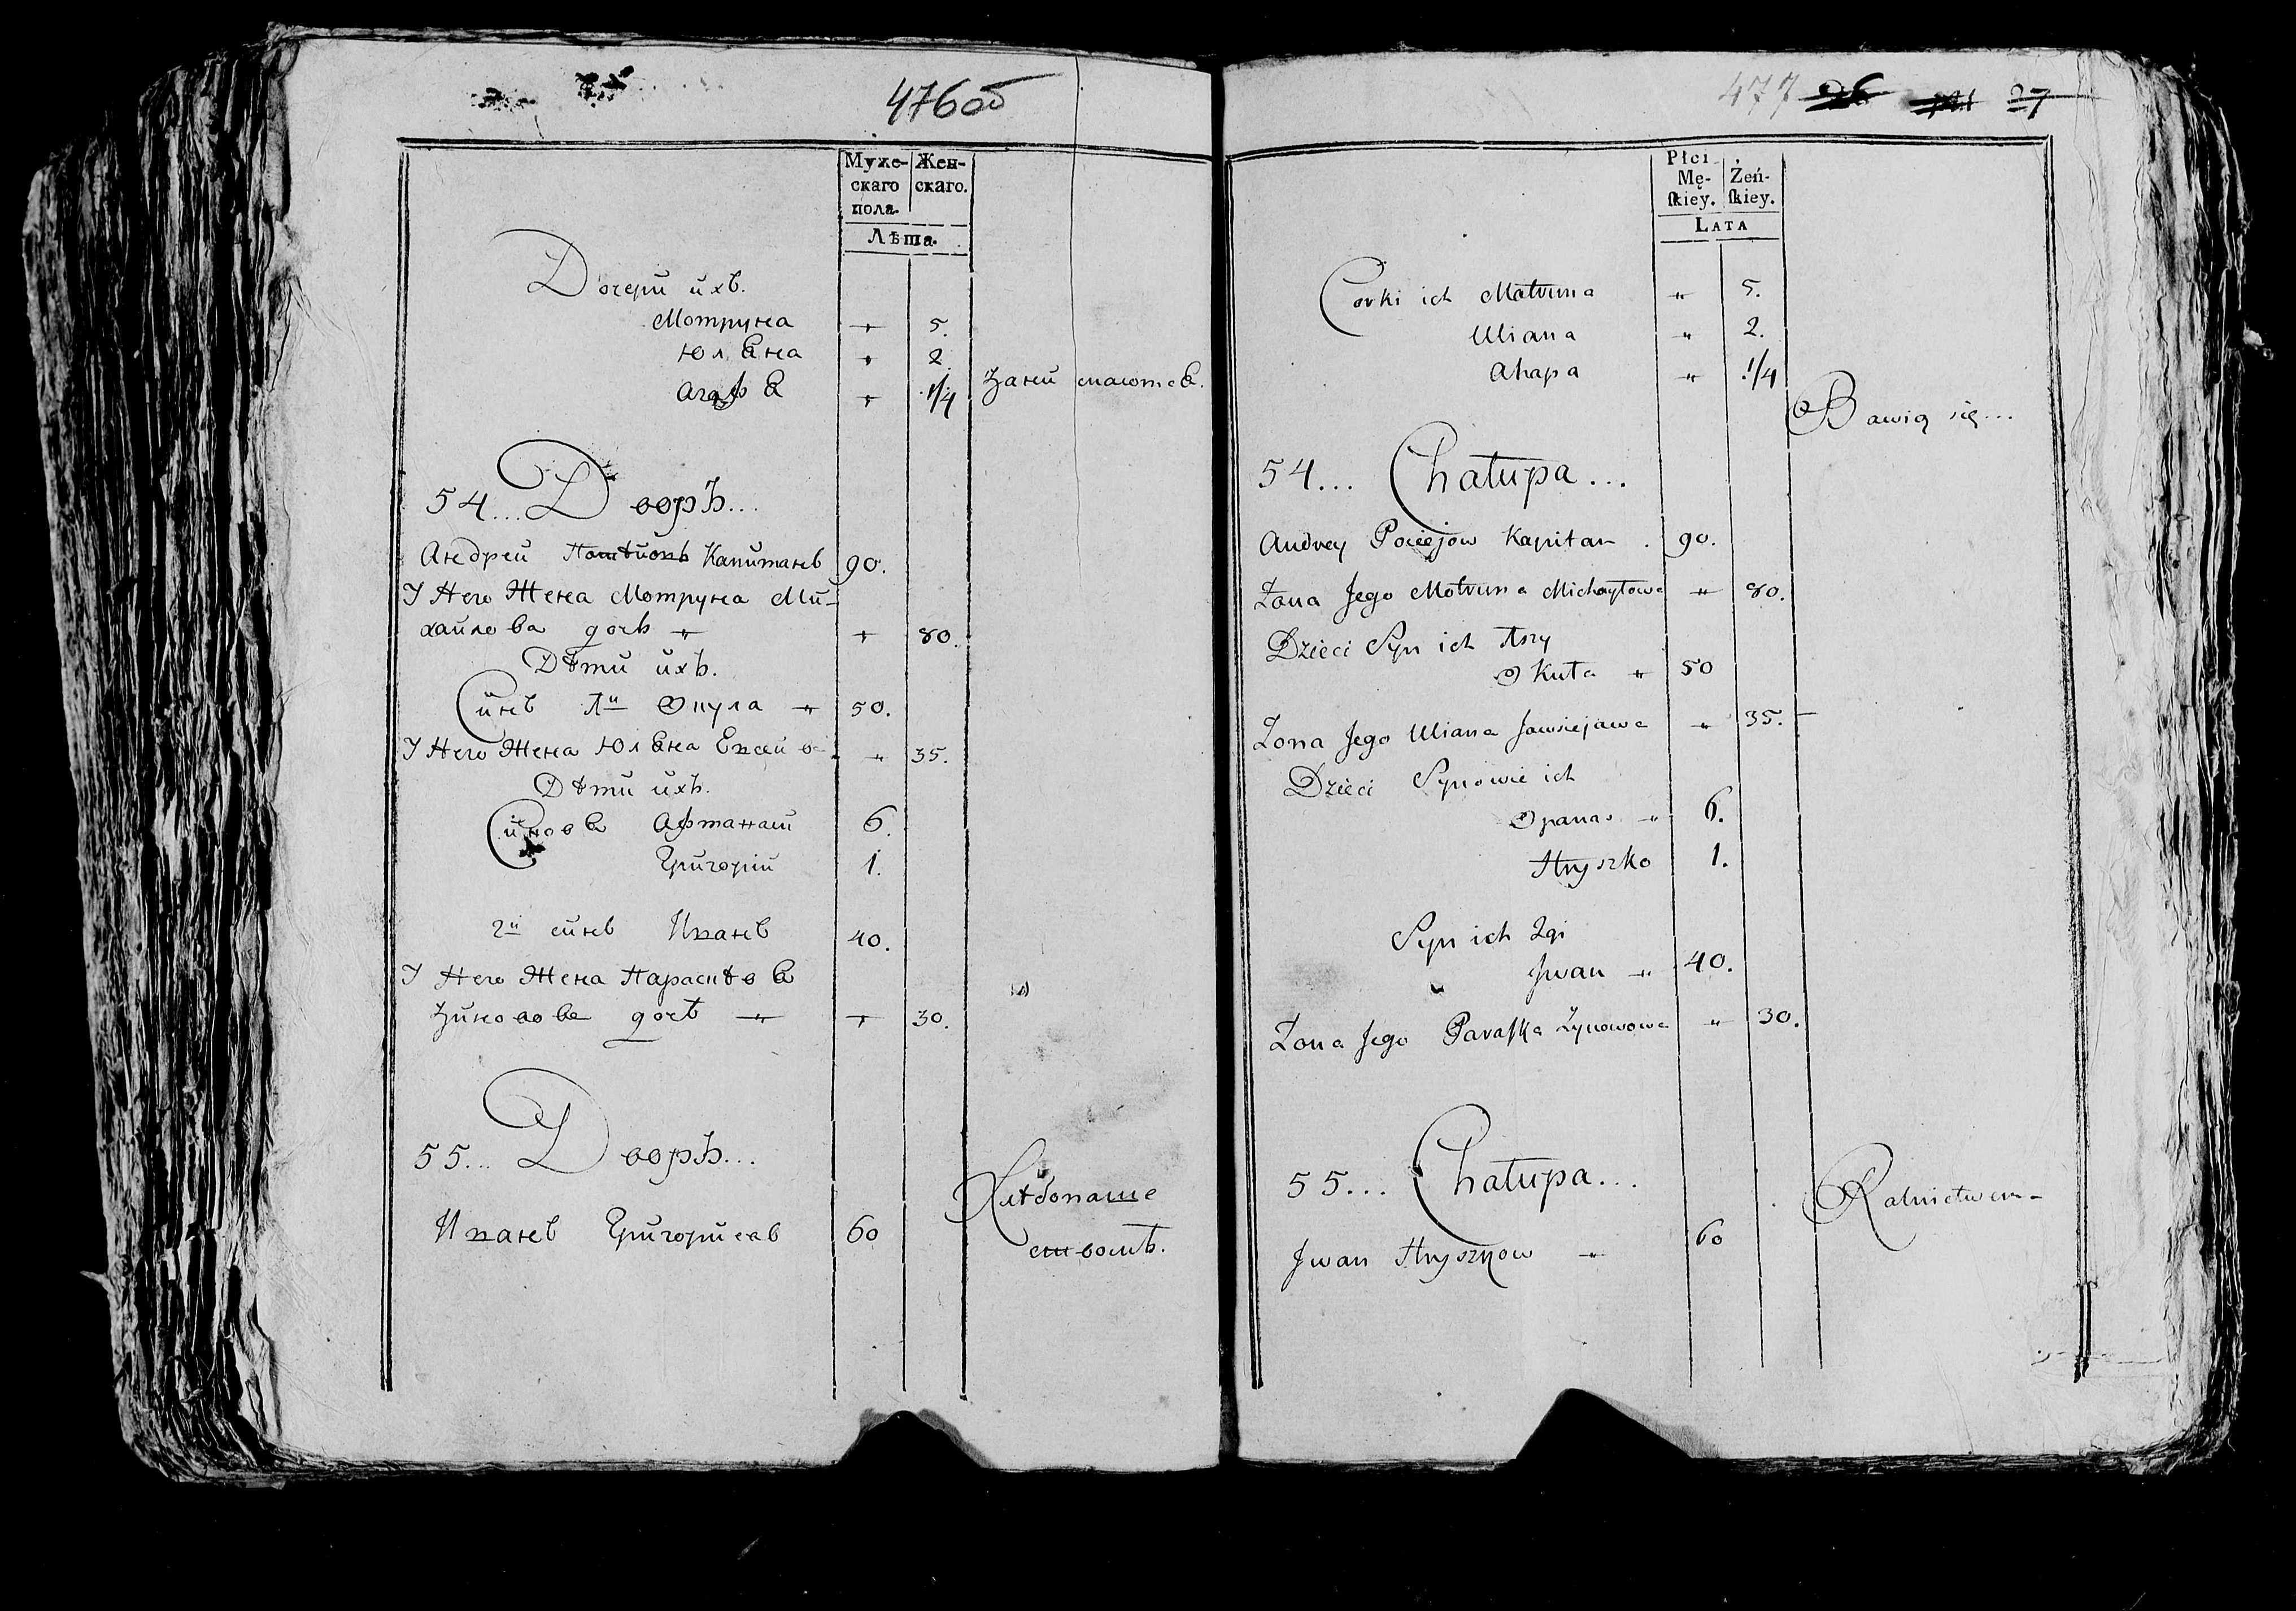 476об
Муже-
скаго
пола.
Жен-
скаго.
Лѣта.
Дочери ихъ.
Мотруна " 5.
Юлѣяна " 2
" 1/4
54... Дворъ...
Андрей Капитанъ 90.
У Него Жена Мотруна Ми-
хайлова дочь " " 80.
Дѣти ихъ.
Синъ 1й " 50.
У Него Жена " 35.
Дѣти ихъ.
Синовя Афтанасій 6.
Григорій 1.
2й синъ Иванъ 40.
У Него Жена
дочь " " 30.
55... Дворъ...
Иванъ Григориевъ 60
Хлѣбопаше
ствомъ.
477 26 27
Płci
Mę-
ſkiey.
Żeń-
ſkiey.
LATA
Corki ich Motruna " 5.
Uliana " 2.
Ahapa " 1/4
Bawią się...
54... Chałupa...
Andrey Pociejow Kapitan . 90.
Żona Jego Motruna Michayłowa " 80.
Dzieci Syn ich 1szy
Okuła " 50
Żona Jego Uliana Jawsiejawa " 35.
Dzieci Synowie ich
Opanas " 6.
Hryszko 1.
Syn ich 2gi
Jwan " 40.
Żona Jego Paraſka Zynowowa " 30.
55... Chałupa...
Jwan Hryszkow " 60
Rolnictwem